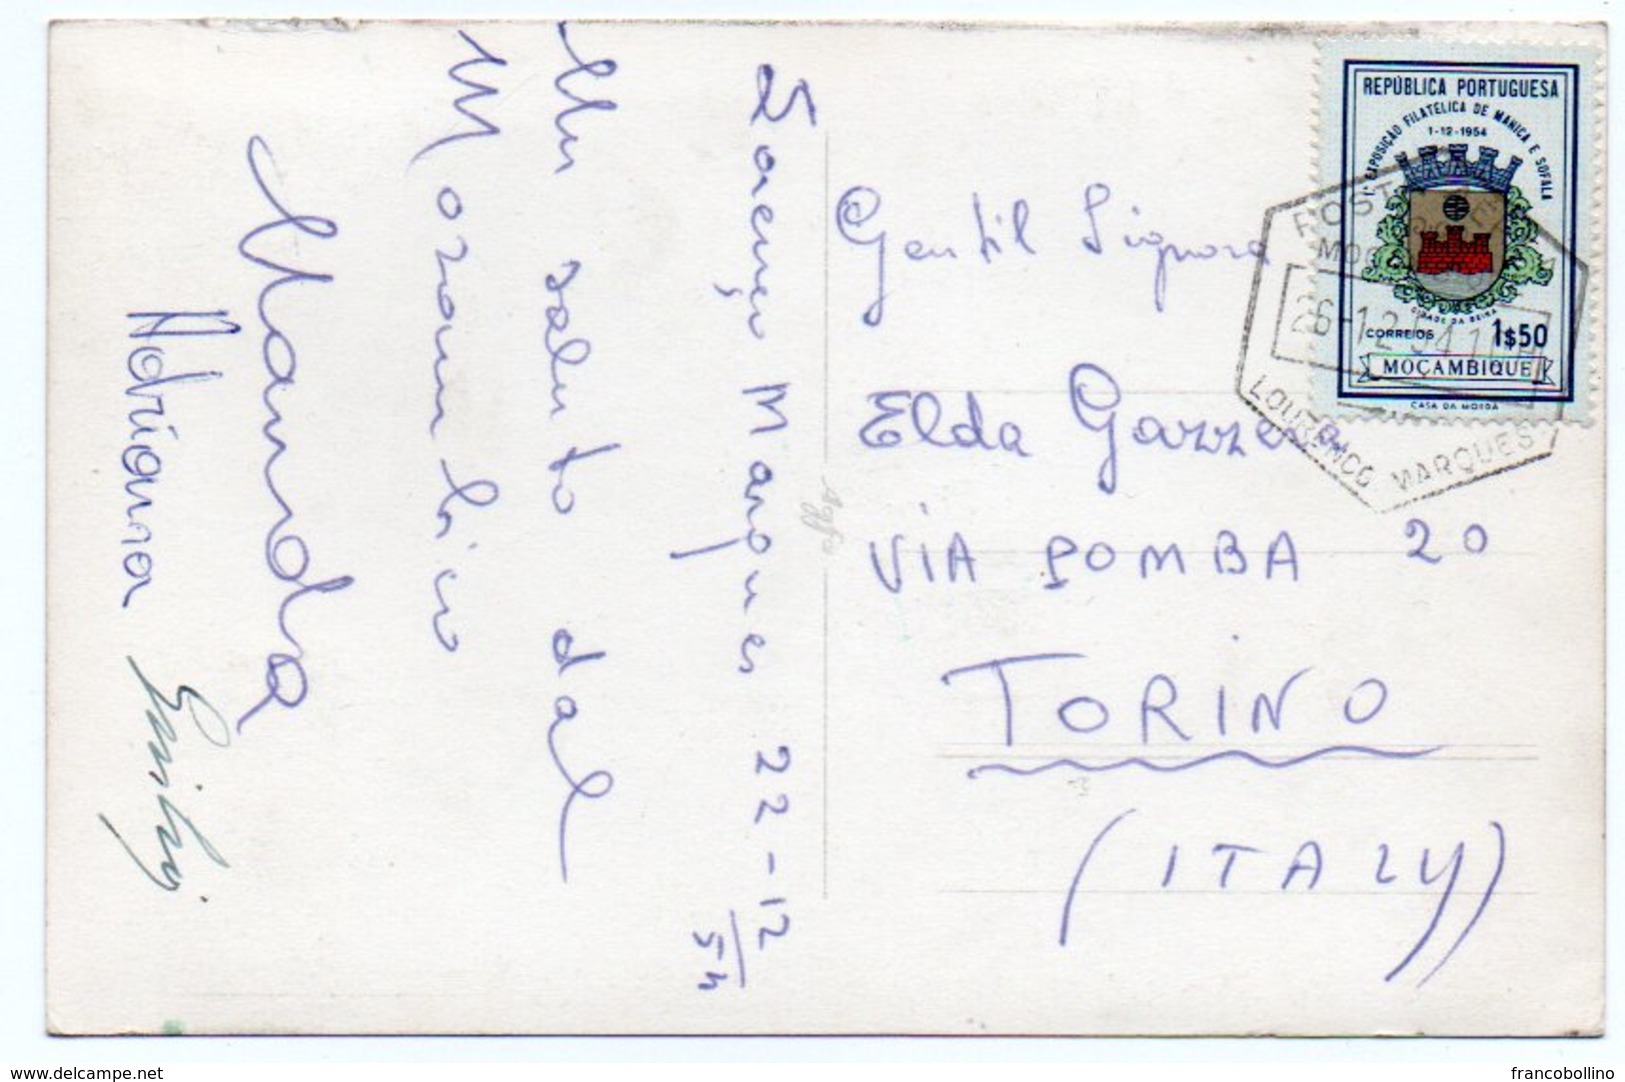 Lourenço Marques 22-12
54
Un saluto dal
Mozambico
Wanda
Adriana
Gentil Signora
Elda Gazzera
VIA POMBA 20
TORINO
(ITALY)
REPÚBLICA PORTUGUESA
1ª EXPOSIÇÃO FILATÉLICA DE MANICA E SOFALA
1-12-1954
CIDADE DA BEIRA
CORREIOS 1$50
MOÇAMBIQUE
CASA DA MOEDA
26-12 54
LOURENCO MARQUES
Agfa
www.delcampe.net
francobollino